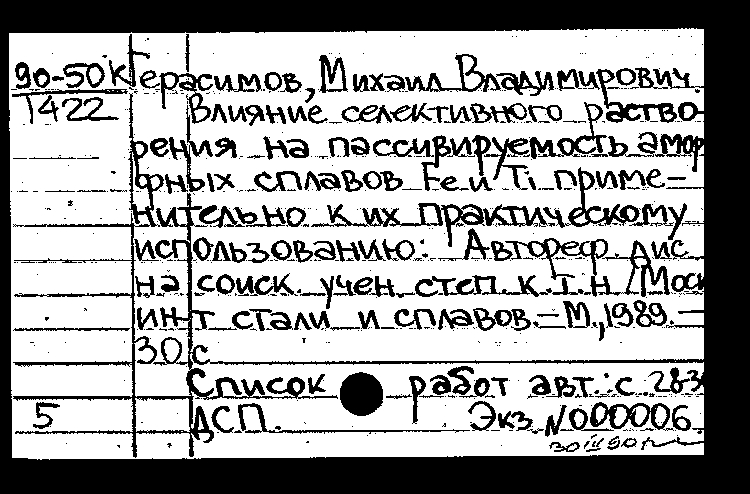 90-50к Герасимов, Михаил Владимирович
1422 Влияние селективного раство-
рения на пассивируемость амор
фных сплавов Fe и Ti приме-
нительно к их практическому
использованию: Автореф. дис
на соиск. учен. степ. к.т.н /Моск
ин-т стали и сплавов.-М.,1989.-
30 с
Список работ авт.: с 28-30
5 ДСП. Экз. N000006.